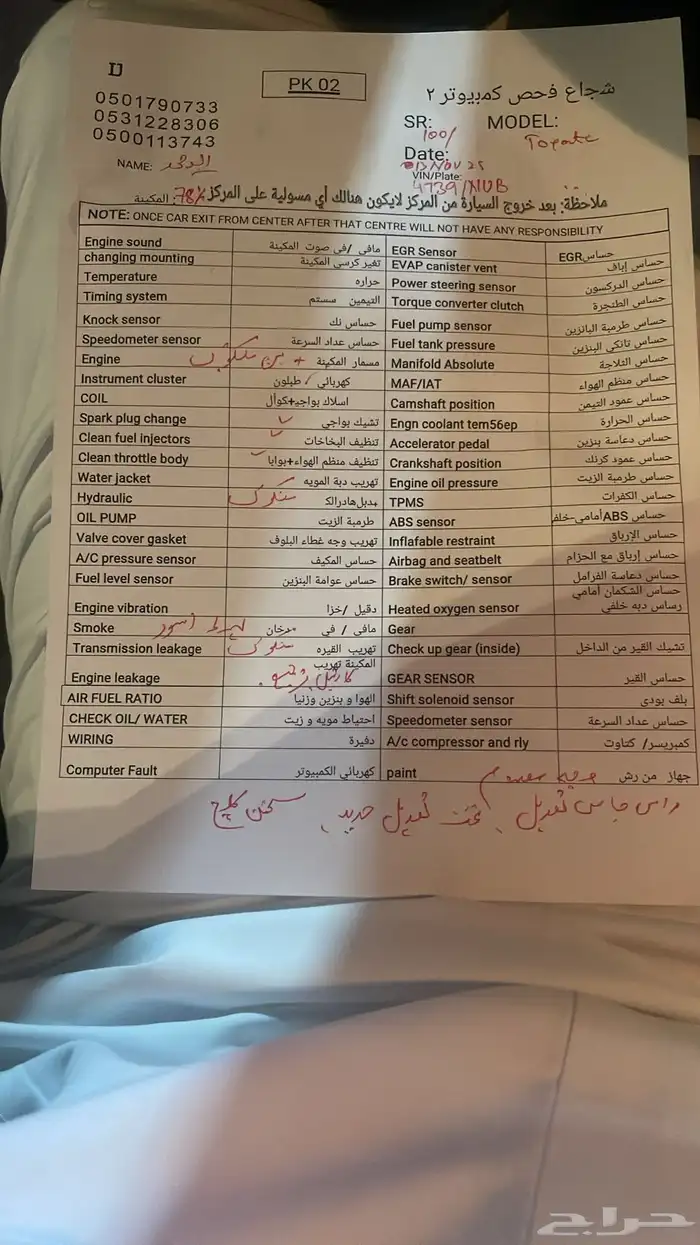 IJ
PK 02
شجاع فحص كمبيوتر ٢
0501790733
0531228306
0500113743
SR: 100/
MODEL:
Date: 13 NOV 25
NAME:
VIN/Plate: 4739/NUB
ملاحظة: بعد خروج السيارة من المركز لايكون هنالك أي مسولية على المركز
78% :المكينة
NOTE: ONCE CAR EXIT FROM CENTER AFTER THAT CENTRE WILL NOT HAVE ANY RESPONSIBILITY
Engine sound مافي /في صوت المكينة EGR Sensor حساسEGR
changing mounting تغير كرسي المكينة EVAP canister vent حساس إباف
Temperature حراره Power steering sensor حساس الدركسون
Timing system التيمين سستم Torque converter clutch حساس الطنجرة
Knock sensor حساس نك Fuel pump sensor حساس طرمبة البانزين
Speedometer sensor حساس عداد السرعة Fuel tank pressure حساس تانكي البنزين
Engine مسمار المكينة + Manifold Absolute حساس الثلاجة
Instrument cluster كهربائي / طبلون MAF/IAT حساس منظم الهواء
COIL اسلاك بواجي+كوأل Camshaft position حساس عمود التيمن
Spark plug change تشيك بواجي Engn coolant tem56ep حساس الحرارة
Clean fuel injectors تنظيف البخاخات Accelerator pedal حساس دعاسة بنزين
Clean throttle body تنظيف منظم الهواء+بوابا Crankshaft position حساس عمود كرنك
Water jacket تهريب دبة المويه Engine oil pressure حساس طرمبة الزيت
Hydraulic دبل هادرالك+ TPMS حساس الكفرات
OIL PUMP طرمبة الزيت ABS sensor حساس ABSأمامي-خلف
Valve cover gasket تهريب وجه غطاء البلوف Inflafable restraint حساس الإرباق
A/C pressure sensor حساس المكيف Airbag and seatbelt حساس إرباق مع الحزام
Fuel level sensor حساس عوامة البنزين Brake switch/ sensor حساس دعاسة الفرامل
Engine vibration دقيل /خزا Heated oxygen sensor حساس الشكمان أمامي
رساس دبه خلفي
Smoke مافي / في دخان Gear
Transmission leakage تهريب القيره Check up gear (inside) تشيك القير من الداخل
Engine leakage المكينة تهريب GEAR SENSOR حساس القير
AIR FUEL RATIO الهوا و بنزين وزنيا Shift solenoid sensor بلف بودى
CHECK OIL/ WATER احتياط مويه و زيت Speedometer sensor حساس عداد السرعة
WIRING دفيرة A/c compressor and rly كمبريسر/ كتاوت
Computer Fault كهربائي الكمبيوتر paint جهاز من رش
حراج